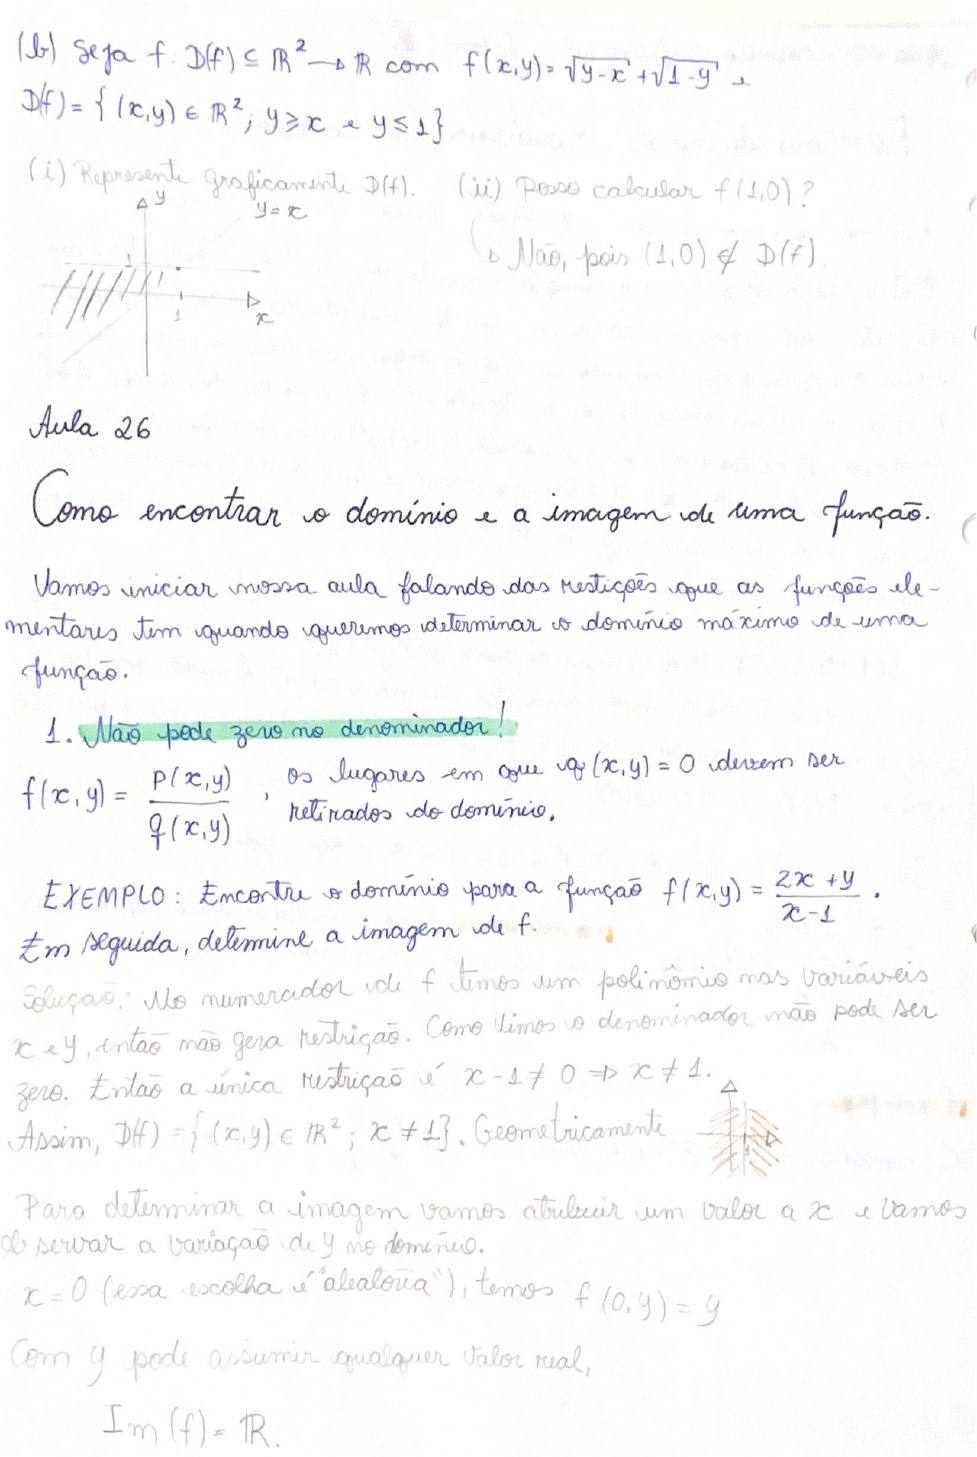 (b) Seja f: D(f) ⊆ ℝ² → ℝ com f(x,y) = √y-x + √1-y e
D(f) = { (x,y) ∈ ℝ²; y ≥ x e y ≤ 1}
(i) Represente graficamente D(f). (ii) Posso calcular f(1,0)?
y
y = x
Não, pois (1,0) ∉ D(f).
1
1
x
Aula 26
Como encontrar o domínio e a imagem de uma função.
Vamos iniciar nossa aula falando das restições que as funções ele-
mentares tem quando queremos determinar o domínio máximo de uma
função.
1. Não pode zero no denominador!
f(x,y) = p(x,y)/q(x,y), os lugares em que q(x,y) = 0 devem ser
retirados do domínio.
EXEMPLO: Encontre o domínio para a função f(x,y) = 2x + y / x - 1.
Em seguida, determine a imagem de f.
Solução: No numerador de f temos um polinômio nas variáveis
x e y, então não gera restrição. Como vimos o denominador não pode ser
zero. Então a única restrição é x - 1 ≠ 0 ⇒ x ≠ 1.
Assim, D(f) = { (x,y) ∈ ℝ²; x ≠ 1}. Geometricamente
1
Para determinar a imagem vamos atribuir um valor a x e vamos
observar a variação de y no domínio.
x = 0 (essa escolha é "aleatória"), temos f(0,y) = y
Com y pode assumir qualquer valor real,
Im(f) = ℝ.